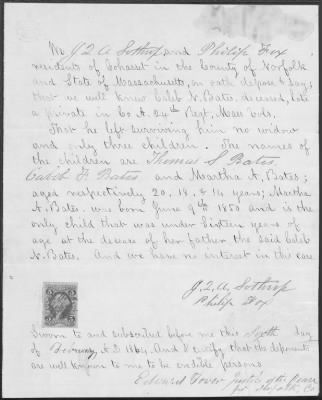 We J. Q. A. Lothrop and Philip Fox
residents of Cohasset in the County of Norfolk
and State of Massachusetts, on oath depose & say,
that we well knew Caleb N. Bates, deceased, late
a private in Co. A. 24th Regt. Mass Vols.
That he left surviving him no widow
and only three children. The names of
the children are Thomas S Bates
Caleb F Bates and Martha A. Bates;
aged respectively 20, 18, & 14 years; Martha
A. Bates was born June 9th 1850 and is the
only child that was under Sixteen years of
age at the decease of her father the said Caleb
N. Bates. And we have no interest in the case
J. Q. A. Lothrop
Philip Fox
Sworn to and subscribed before me this day
of A.D. 1864. And I certify that the deponents
are well known to me to be credible persons
Edward Justice of the Peace
for Norfolk Co